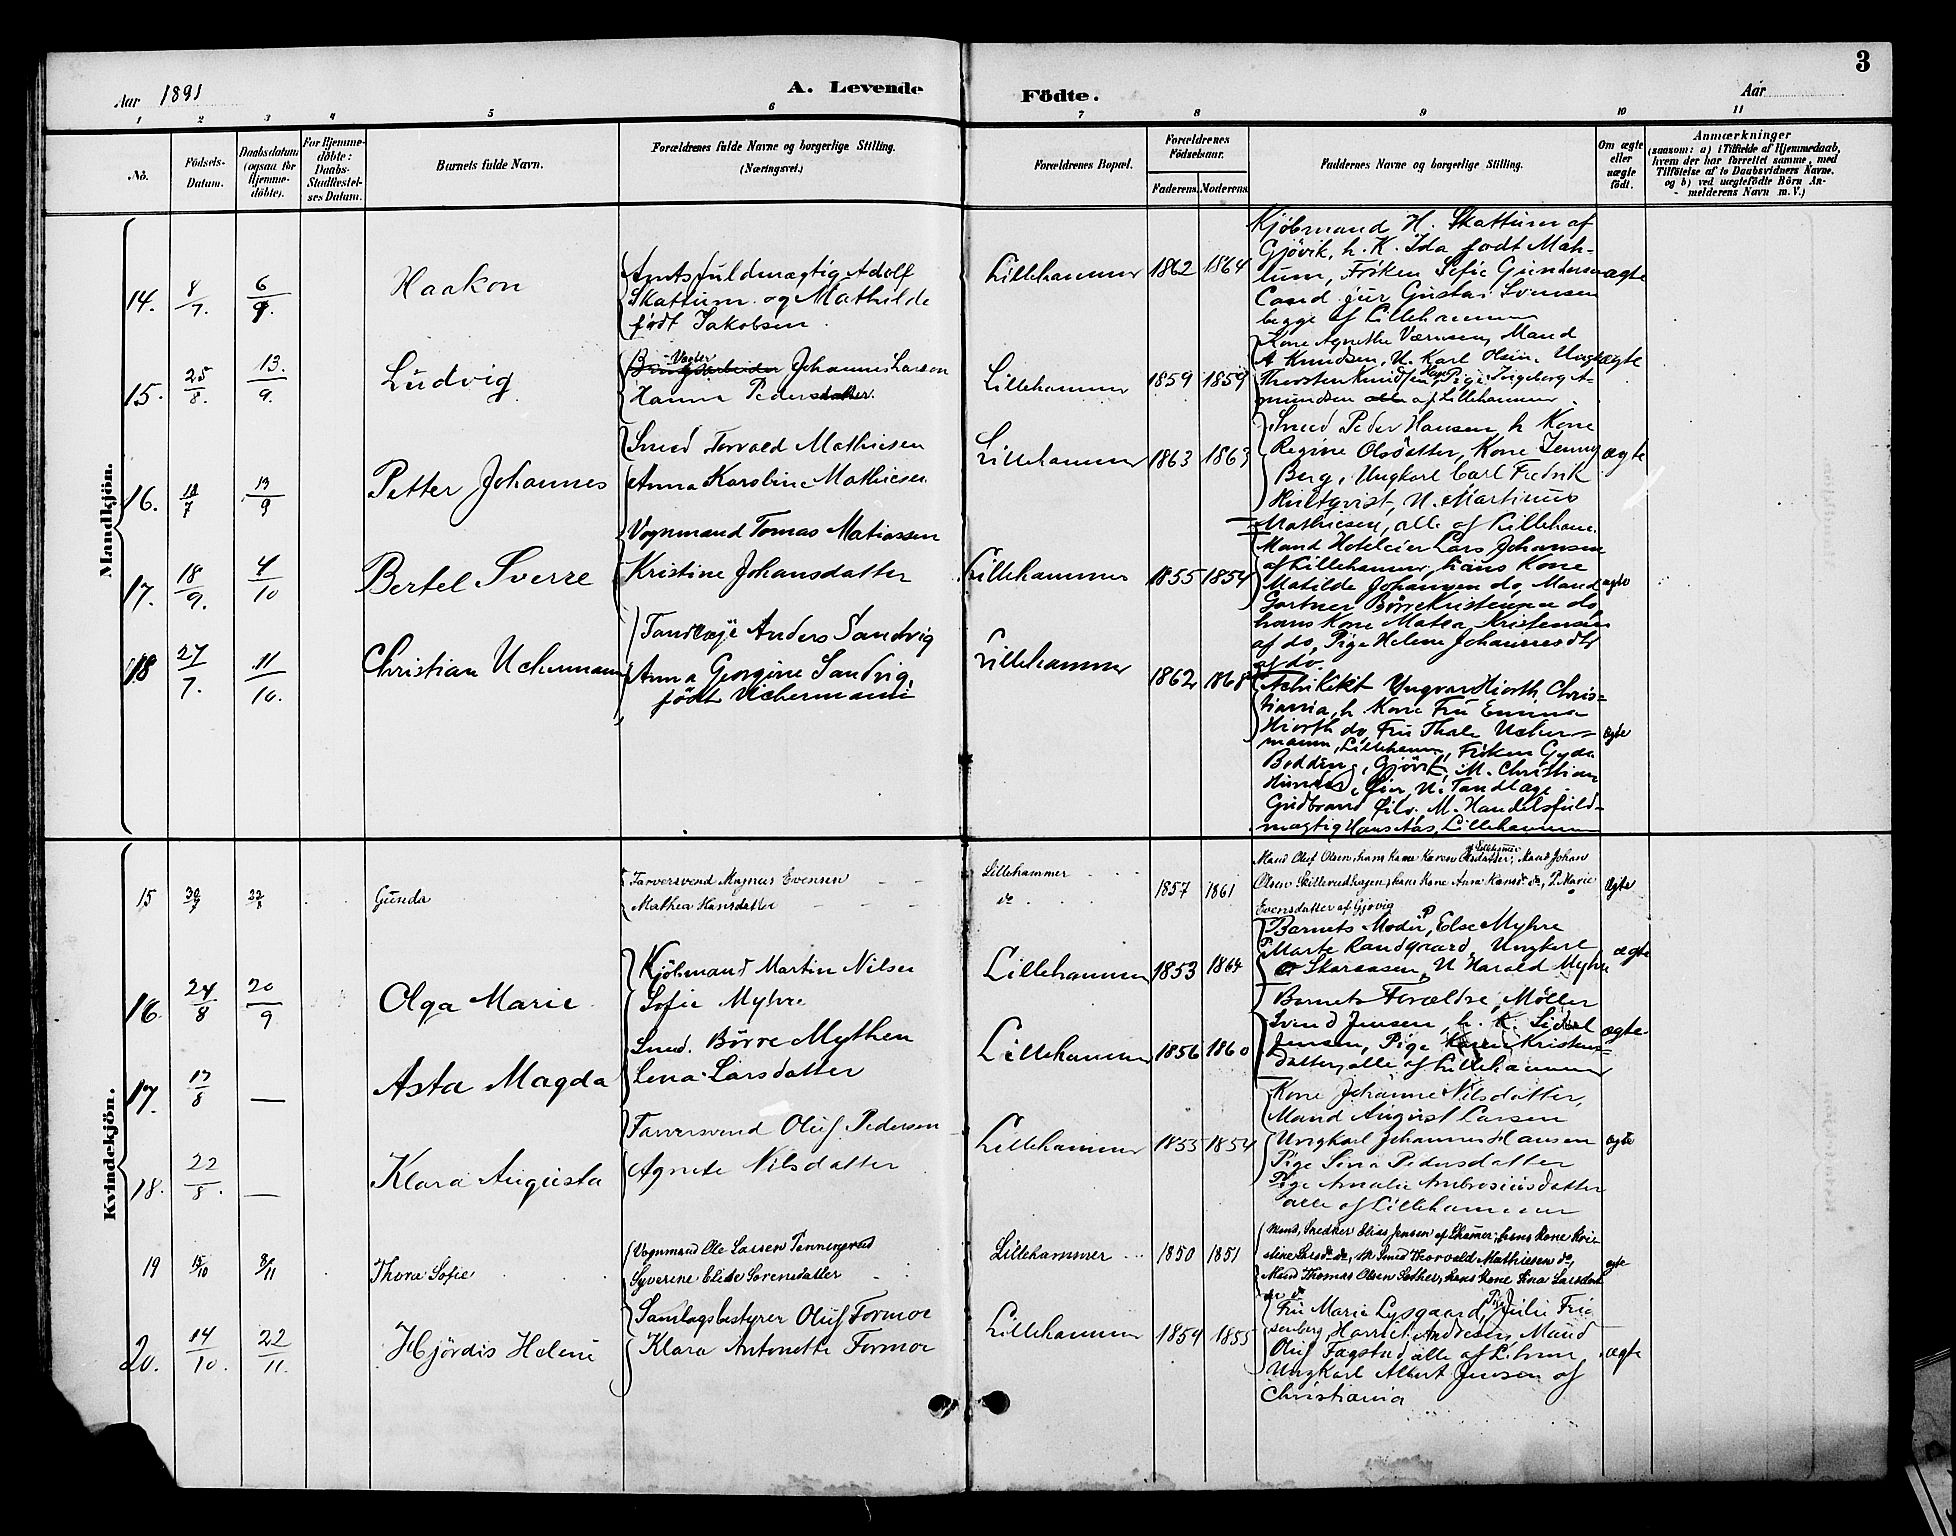 3
Aar 1891
A. Levende Födte.
Aar
1 2 3 4 5 6 7 8 9 10 11
No.
Födsels-Datum.
Daabsdatum (ogsaa for Hjemme-döbte).
For Hjemme-döbte: Daabs-Stadfæstel-ses Datum.
Barnets fulde Navn.
Forældrenes fulde Navne og borgerlige Stilling.
(Næringsvei.)
Forældrenes Bopæl.
Forældrenes Födselsaar.
Faderens. Moderens.
Faddernes Navne og borgerlige Stilling.
Om ægte eller uægte födt.
Anmærkninger
(saasom: a) i Tilfælde af Hjemmedaab, hvem der har forrettet samme, med Tilföielse af to Daabsvidners Navne, og b) ved uegtefödte Börn An-melderens Navn m. V.)
Mandkjön.
14. 8/7. 6/9. Haakon
Amtsfuldmægtig Adolf
Skattum og Mathilde
født Jakobsen.
Lillehammer 1862 1864
Kjöbmand H. Skattum af
Gjövik, h. K. Ida født Mæh-
lum, Frøken Sofie Gundersen
Cand. jur Gustav Svensen
begge af Lillehammer
ægte
15. 25/8. 13/9. Ludvig
Vogter Johannes Larsen
Hanna Pedersdatter.
Lillehammer 1859 1859
Kone Agnethe Værnsen, Mand
A. Knudsen, U. Karl Olsen, Ungk
Thorsten Knudsen, Pige Ingeborg A-
mundsen af Lillehammer.
ægte
16. 18/7 13/9 Petter Johannes
Smed Torvald Mathiesen
Anna Karoline Mathiesen
Lillehammer 1863 1863
Smed Peder Hansen, h Kone
Regine Olsdatter, Kone Jenny
Berg, Ungkarl Carl Fredrik
Hultqvist, U. Martinus
Mathiesen, alle af Lilleham.
ægte
17. 18/9. 4/10 Bertel Sverre
Vognmand Tomas Matiassen
Kristine Johansdatter
Lillehammer 1855 1854
Mand Hoteleier Lars Johansen
af Lillehammer, hans Kone
Matilde Johansen do, Mand
Gartner Børre Kristensen do,
hans Kone Matea Kristensen
af do, Pige Helene Johannesdtr
af do.
ægte
18 27/7. 11/10. Christian Uchermann
Tandlæge Anders Sandvig
Anna Georgine Sandvig,
født Uchermann
Lillehammer 1862 1868
Arkitekt Yngvar Hiorth Chris-
tiania, h Kone Fru Emma
Hiorth do, Fru Thale Ucher-
mann, Lillehamm, Frøken Gyda
Bødding, Gjövik, M. Christian
Øier, U. Tandlæge
Gudbrand M. Handelsfuld-
mægtig Hans Aas, Lillehammer
ægte
Kvindekjön.
15 30/7 23/8 Gunda
Farversvend Magnus Evensen
Mathea Hansdatter
Lillehammer
do
1857 1861
Mand Oluf Olsen, hans Kone Karen Olsdatter; Mand Johan
Olsen Skillerudhagen, hans Kone Anne Hansd. do, P. Marie
Evensdatter af Gjøvig
Ægte
16. 24/8 20/9 Olga Marie
Kjöbmand Martin Nilsen
Sofie Myhre
Lillehammer 1853 1864
Barnets Moder, P Else Myhre
P. Marte Randgaard, Ungkarl
O Skaraasen, U Harald Myhre
ægte
17. 17/8 — Asta Magda
Smed. Börre Mythen
Lena Larsdatter
Lillehammer 1856 1860
Barnets Forældre, Möller
Svend Jensen, h. K. Sidsel
Jensen, Pige Karen Kristens-
datter, alle af Lillehammer
ægte
18. 22/8. — Klara Augusta
Farversvend Oluf Pedersen
Agnete Nilsdatter
Lillehammer 1855 1854
Kone Johanne Nilsdatter,
Mand August Larsen
Ungkarl Johannes Hansen
Pige Sina Pedersdatter
Pige Amalie Ambrosiusdatter
alle af Lillehammer
ægte
19 15/10 8/11 Thora Sofie
Vognmand Ole Larsen Tenningrud
Syverine Elise Sorensdatter
Lillehammer 1850 1851
Mand, Snedker Elias Jensen af Lhamer, hans Kone Kri-
stine Larsd. do, M Smed Thorvald Mathiesen do,
Mand Thomas Olsen Sother, hans Kone Lina Larsdat-
ter do
ægte
20. 14/10. 22/11. Hjördis Helene
Samlagsbestyrer Oluf Formoe
Klara Antonette Formoe
Lillehammer 1854 1855
Fru Marie Lysgaard, Pige Julie Frie
senberg, Harriet Andresen, Mand
Oluf Fagstad alle af L.hmr
Ungkarl Albert Jensen af
Christiania
ægte